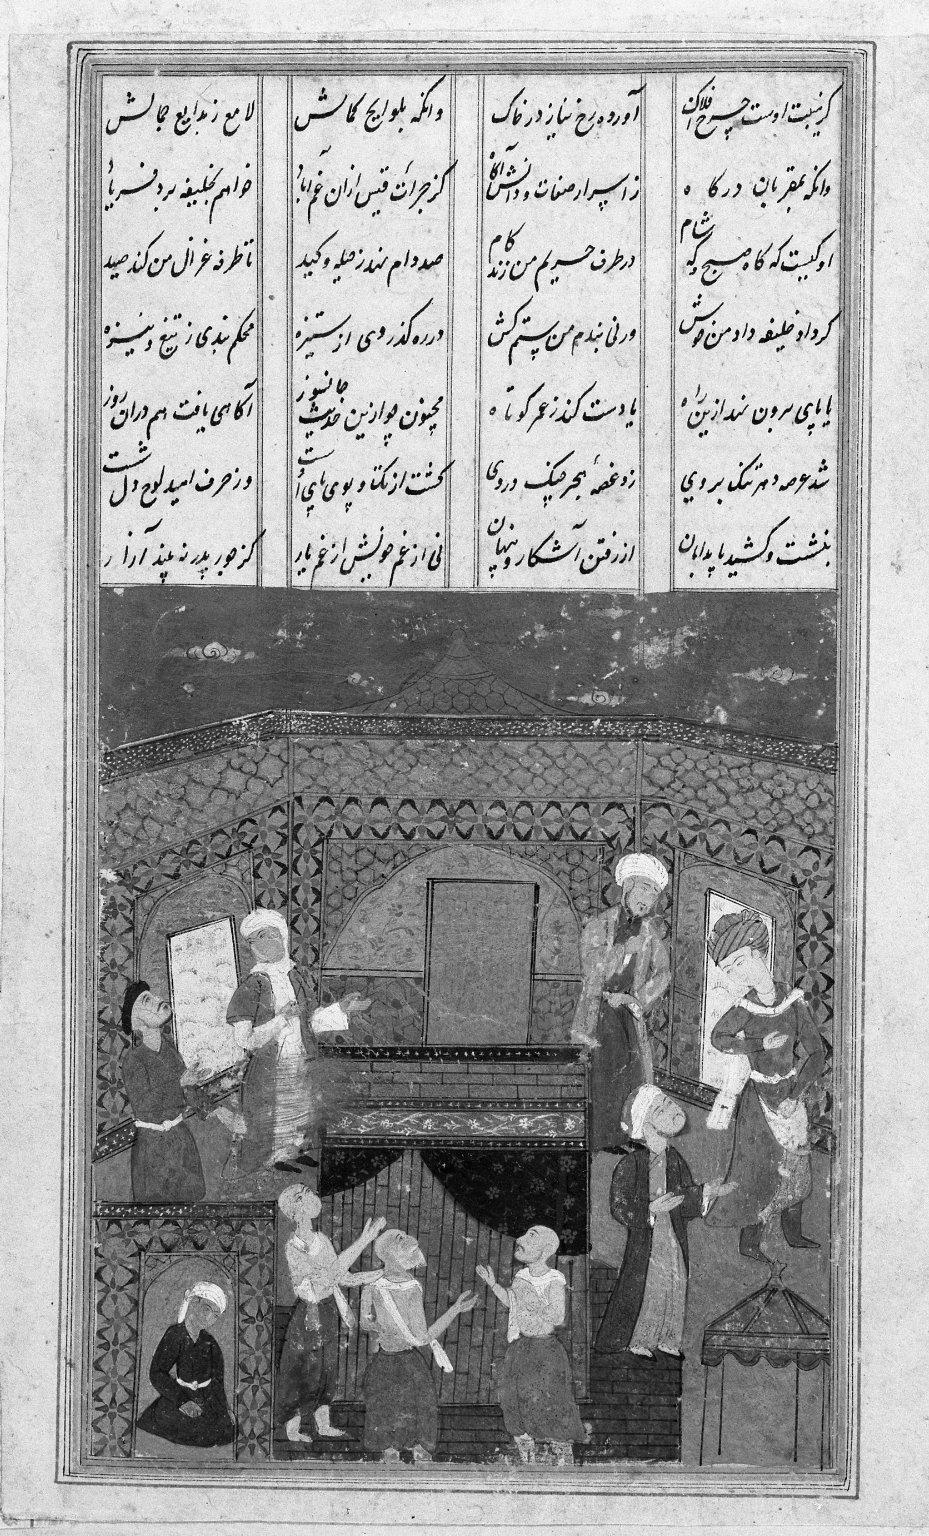 کز نسبت اوست چرخ افلاک آورده رخ نیاز در خاک وانکه بلوایح کمالش لامع ز بدایع جمالش
وانکه بمقربان درگاه ز اسرار صفات و دانش آگاه کز جرأت قیس ازان غم آباد خواهم بخلیفه برد فریاد
او کیست که گاه صبح و گه شام در طرف حریم من زند گام صد دام نهد ز حیله و کید تا طرفه غزال من کند صید
گر داد خلیفه داد من خوش ورنی نبدم من ستم کش در ره گذر وی از ستیزه محکم بندی ز تیغ و نیزه
یا پای برون نهد ازین راه یا دست کند ز عمر کوتاه مجنون چو ازین حدیث جانسوز آگاهی یافت هم دران روز
شد عرصه دهر تنگ بروی زد غصه هجر چنگ دروی گشت از تکاپوی پای سست وز حرف امید لوح دل شست
بنشست و کشید پا بدامان از رفتن آشکار و پنهان نی از غم خویش از غم یار کز جور پدر نه بیند آزار